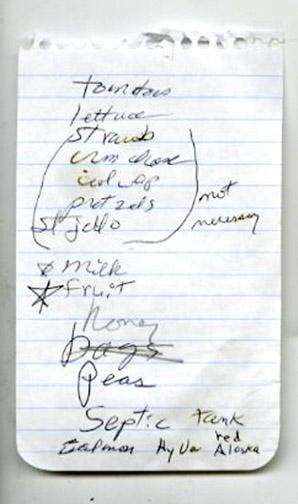 tomatoes
lettuce
pretzels
St jello
not
necessary
milk
fruit
honey
bags
Peas
Septic tank
Salmon Hy Va red
Alaska